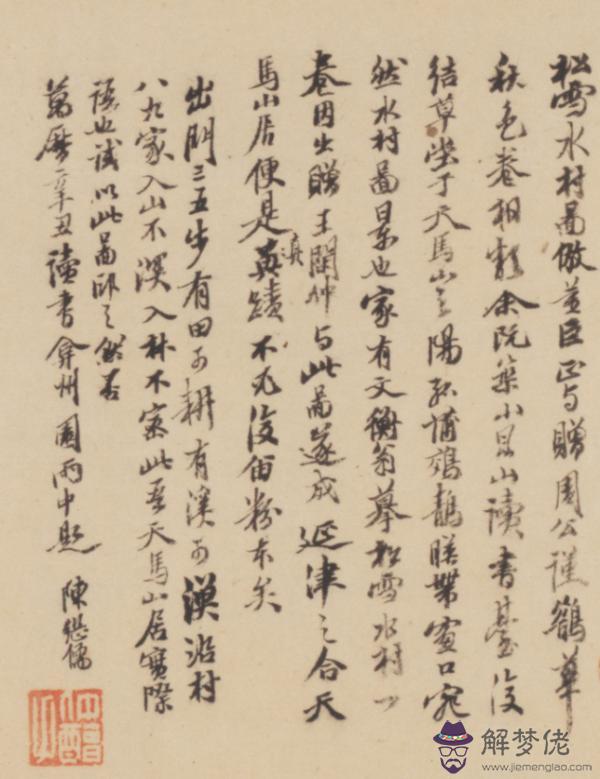 松雪水村圖倣董巨正与贈周公謹鵲華
秋色卷相類余既築小昆山讀書臺復
結草堂于天馬山之陽菰蒲鵁鶄映帶窗口宛
然水村圖景也家有文衡翁摹松雪水村一
卷因出贈王閏仲与此圖遂成延津之合天
馬山居便是真蹟不必復留粉本矣
出門三五步有田可耕有溪可漁沿村
八九家入山不深入林不密此吾天馬山居實際
語也試以此圖印之然否
萬曆辛丑讀書弇州園雨中題 陳繼儒
解梦佬
www.jiemenglao.com